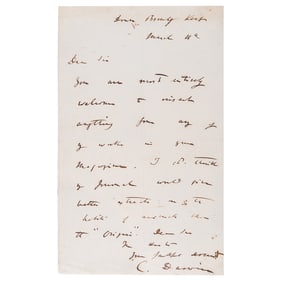 Down, Bromley, Kent
March 4th
Dear Sir
You are most entirely
welcome to insert
anything from any of
my works in your
Magazine. I sh. think
my Journal would give
better extracts as to the
habits of animals than
the "Origin". Dear Sir
Your faithful servant
C. Darwin